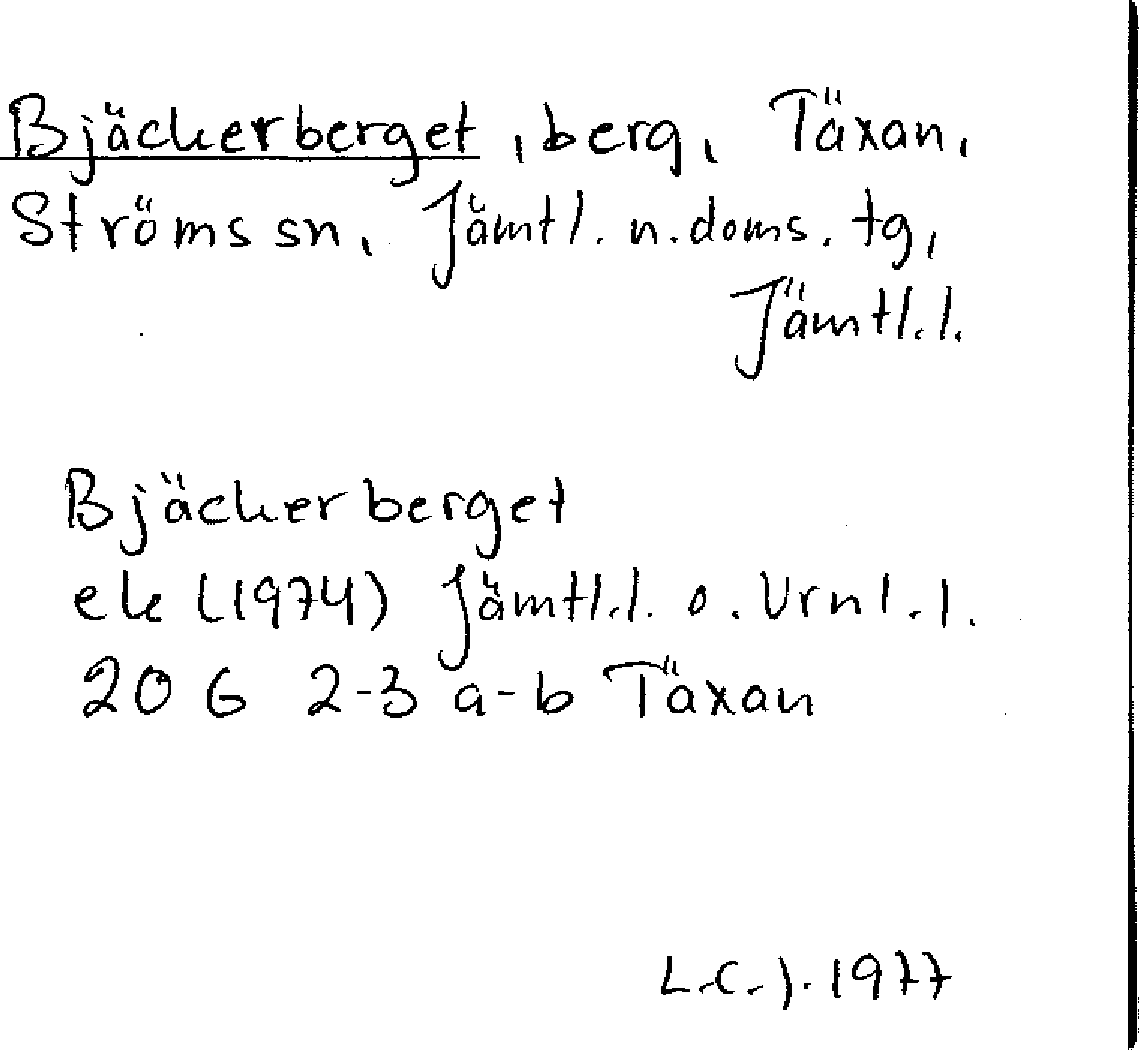 Bjäckerberget, berg, Täxan,
Ströms sn, Jämtl. n. doms. tg,
Jämtl.l.
Bjäckerberget
ek (1974) Jämtl.l. o. Vrnl.l.
20 G 2-3 a-b Täxan
L.C.J. 1977